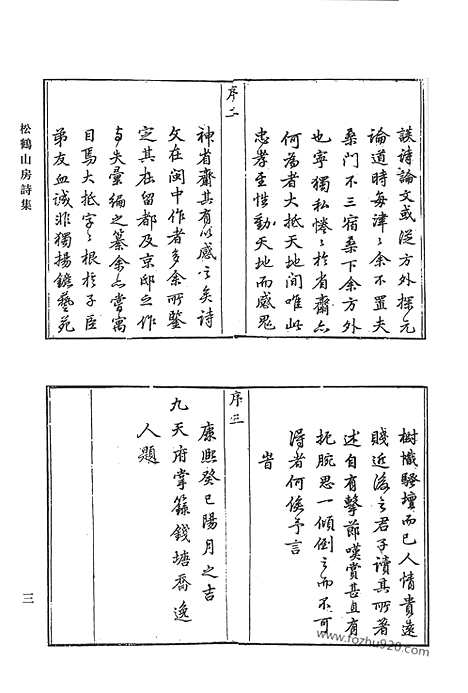 松鶴山房詩集
談詩論文或從方外探元
論道時每津〻余不置夫
桑門不三宿桑下余方外
也寧獨私惓〻於省齋亦
何為者大抵天地間唯此
忠孝至性動天地而感鬼
序二
神省齋其有以感之矣詩
文在闽中作者多余所鑒
定其在留都及京邸之作
与失彙編之纂余亦嘗寓
目焉大抵字〻根於子臣
弟友血誠非獨揚鑣藝苑
樹幟騷壇而已人情貴遠
賤近後之君子讀其所著
述自有擊節嘆賞甚且有
扼腕思一傾倒之而不可
得者何俟予言
旹
序三
康熙癸巳陽月之吉
九天府掌籙錢塘喬逸
人題
三
www.fozhu920.com